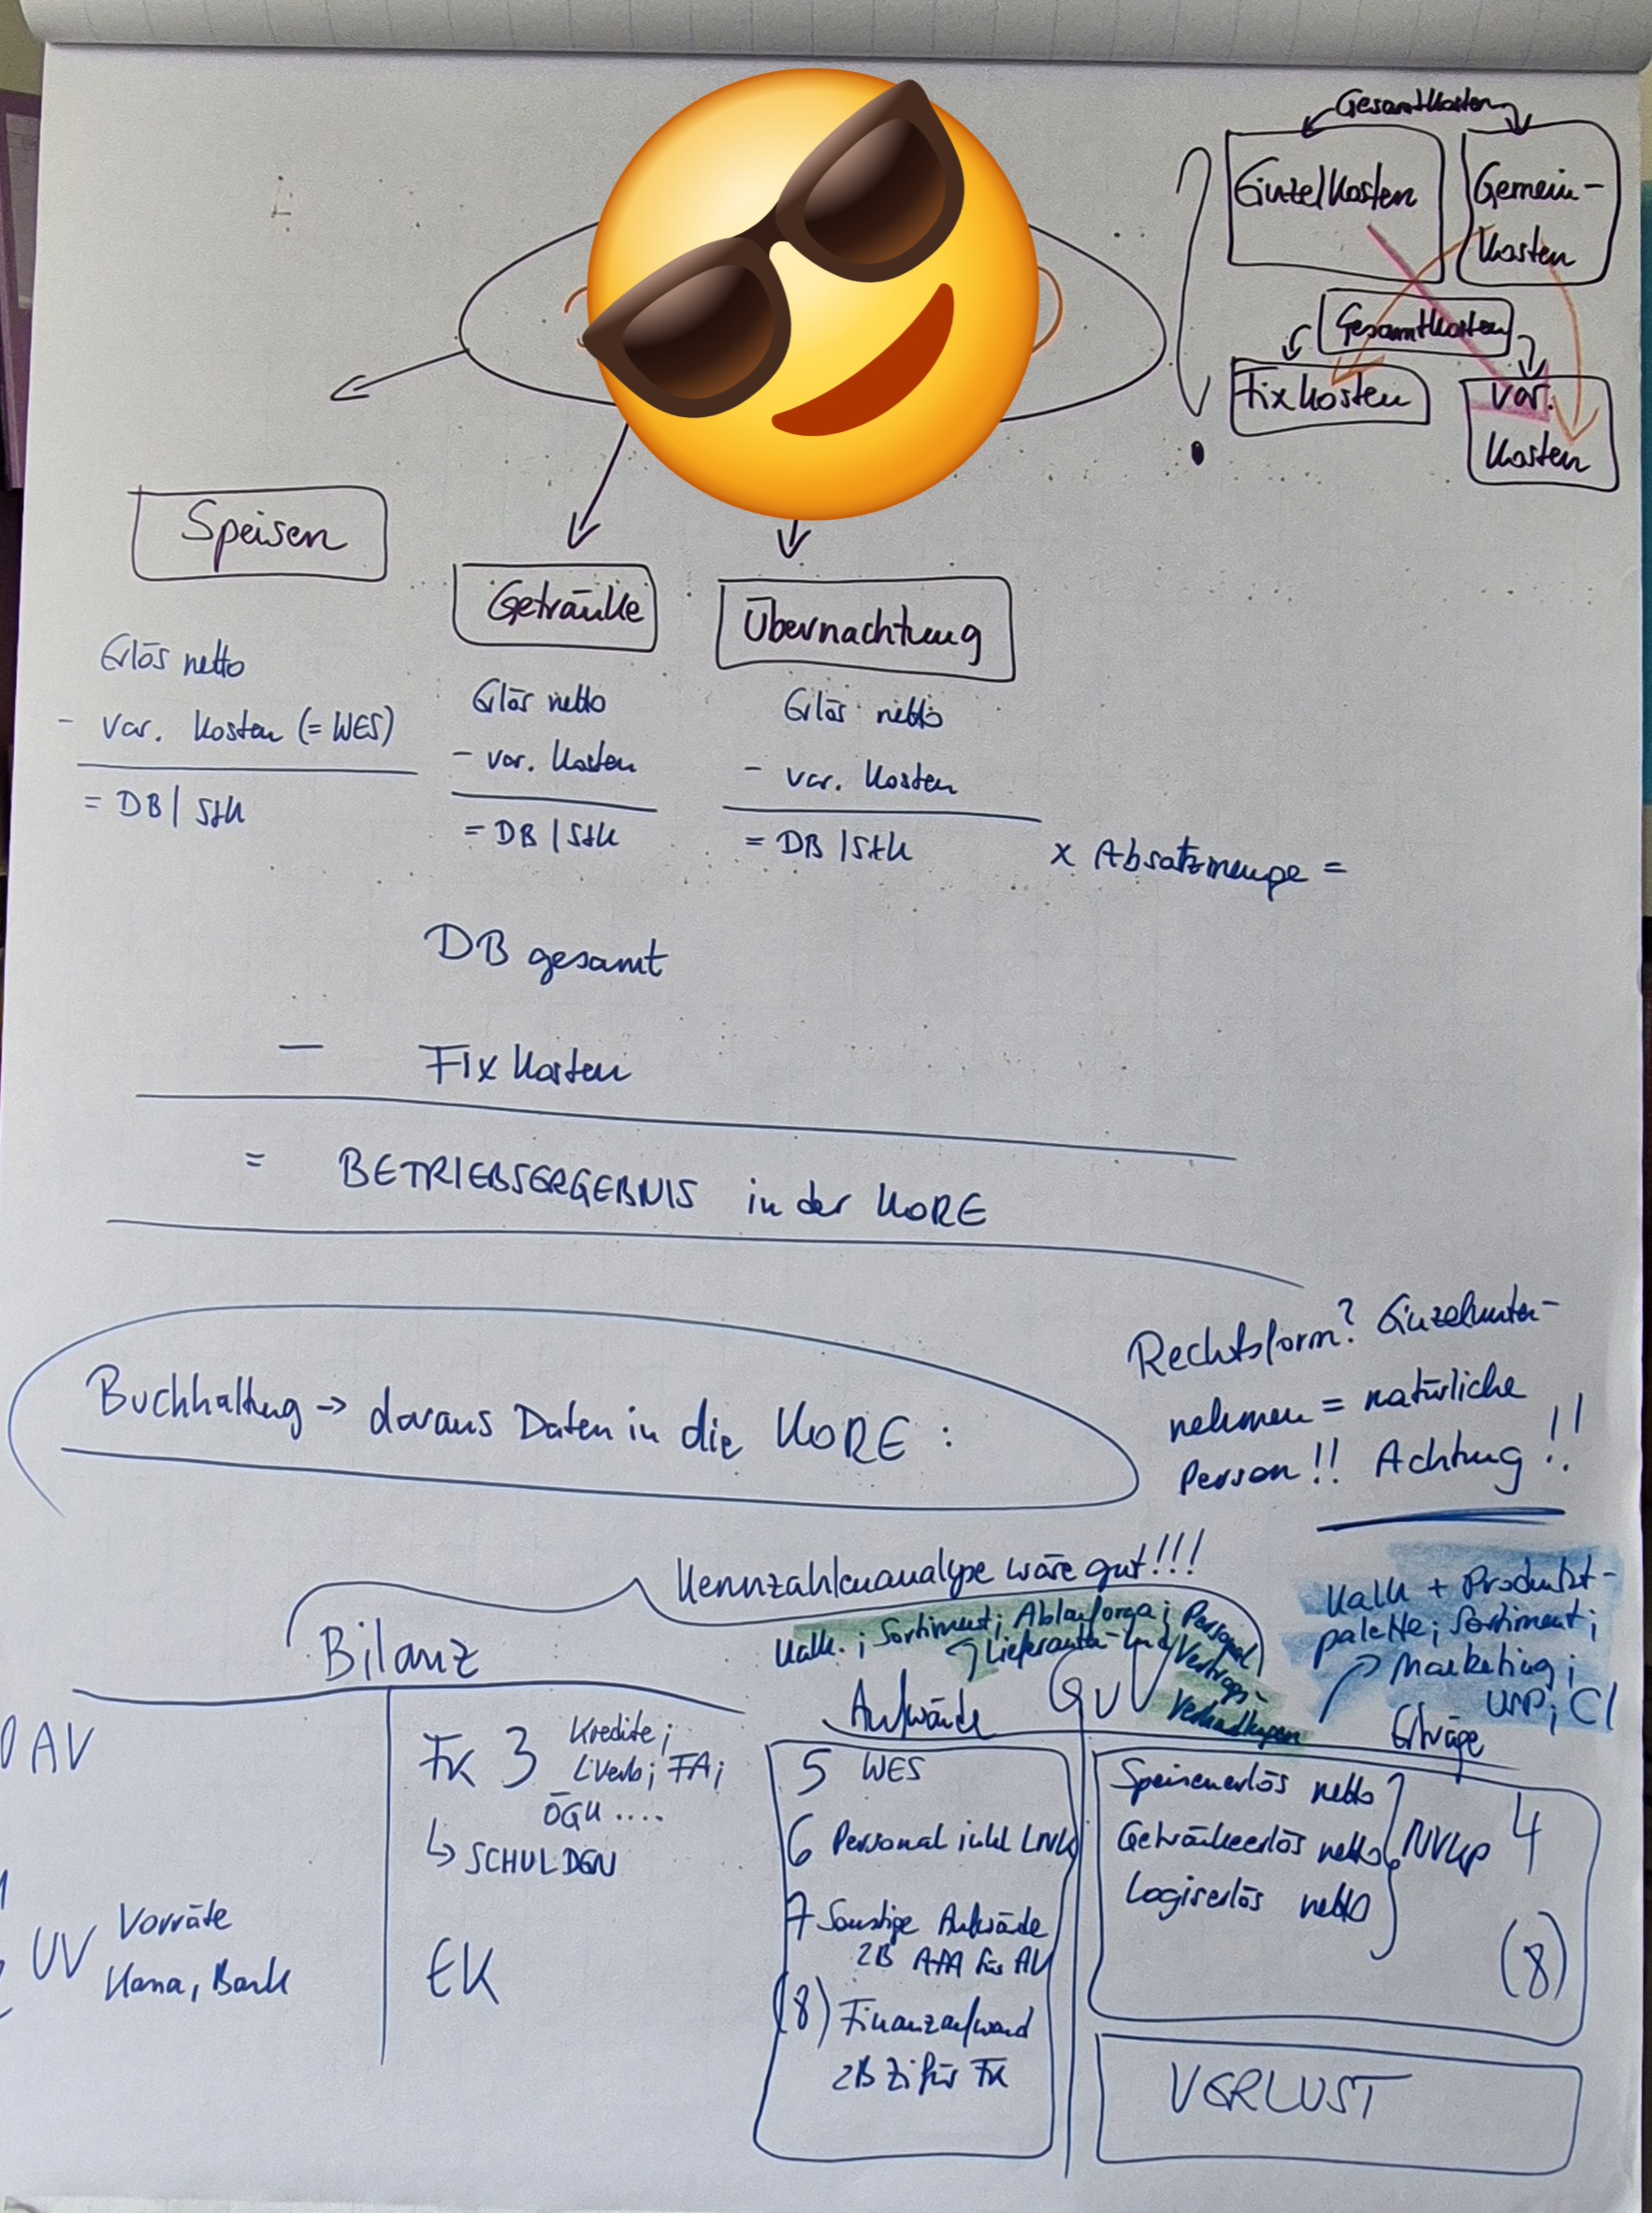 Gesamtkosten
Einzelkosten
Gemein-
kosten
Gesamtkosten
Fixkosten
var.
Kosten
Speisen
Getränke
Übernachtung
Erlös netto
- var. Kosten (= WES)
= DB | Stk
Erlös netto
- var. Kosten
= DB | Stk
Erlös netto
- var. Kosten
= DB | Stk
x Absatzmenge =
DB gesamt
- Fixkosten
= BETRIEBSERGEBNIS in der KORE
Buchhaltung → daraus Daten in die KORE :
Rechtsform? Einzelunter-
nehmen = natürliche
Person!! Achtung!!
Kennzahlenanalyse wäre gut!!!
Kalk. ; Sortiment; Ablauforga; Personal
Lieferanten- und Vertrags-
Verhandlungen
Kalk + Produkt-
palette; Sortiment;
Marketing;
USP; CI
Bilanz
0 AV
UV Vorräte
Kassa, Bank
FK 3 Kredite;
LVerb; FA;
ÖGK ....
↳ SCHULDEN
EK
Aufwände GUV Erträge
5 WES
6 Personal inkl LNK
7 Sonstige Aufwände
ZB AfA für AV
(8) Finanzaufwand
ZB Zi für FK
Speisenerlös netto
Getränkeerlös netto
Logiserlös netto
NVKP 4
(8)
VERLUST